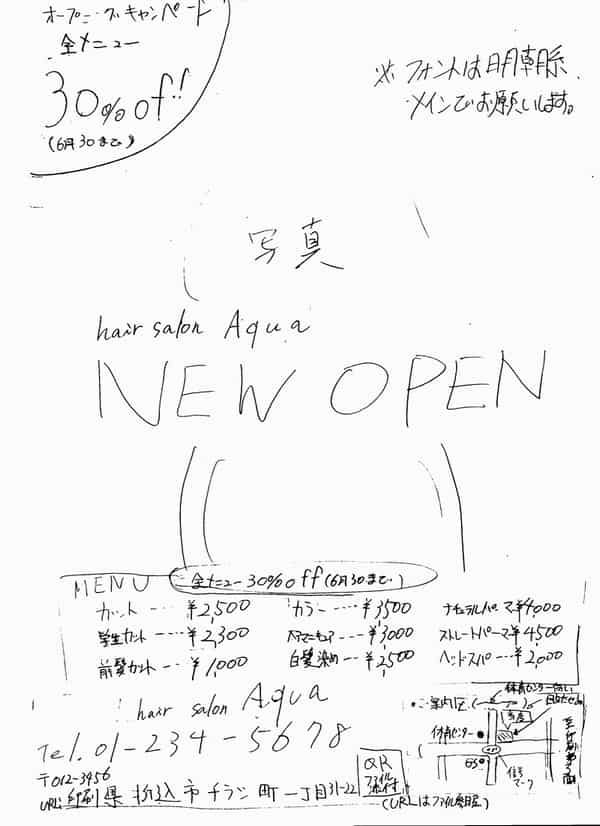 オープニングキャンペーン
全メニュー
30%off!!
(6月30まで)
※ フォントは明朝系
メインでお願いします。
写真
hair salon Aqua
NEW OPEN
MENU 全メニュー30%off(6月30まで)
カット ---- ¥2,500 カラー ---- ¥3500 ナチュラルパーマ ¥4000
学生カット --- ¥2,300 ヘアマニキュア --- ¥3000 ストレートパーマ ¥4500
前髪カット --- ¥1,000 白髪染め --- ¥2500 ヘッドスパ --- ¥2,000
hair salon Aqua
Tel. 01-234-5678
〒012-3456
URL: 印刷県折込市チラシ町一丁目31-22
QR
ファイル
添付
(URLはファイル参照)
ご案内図
体育センター
信号
マーク